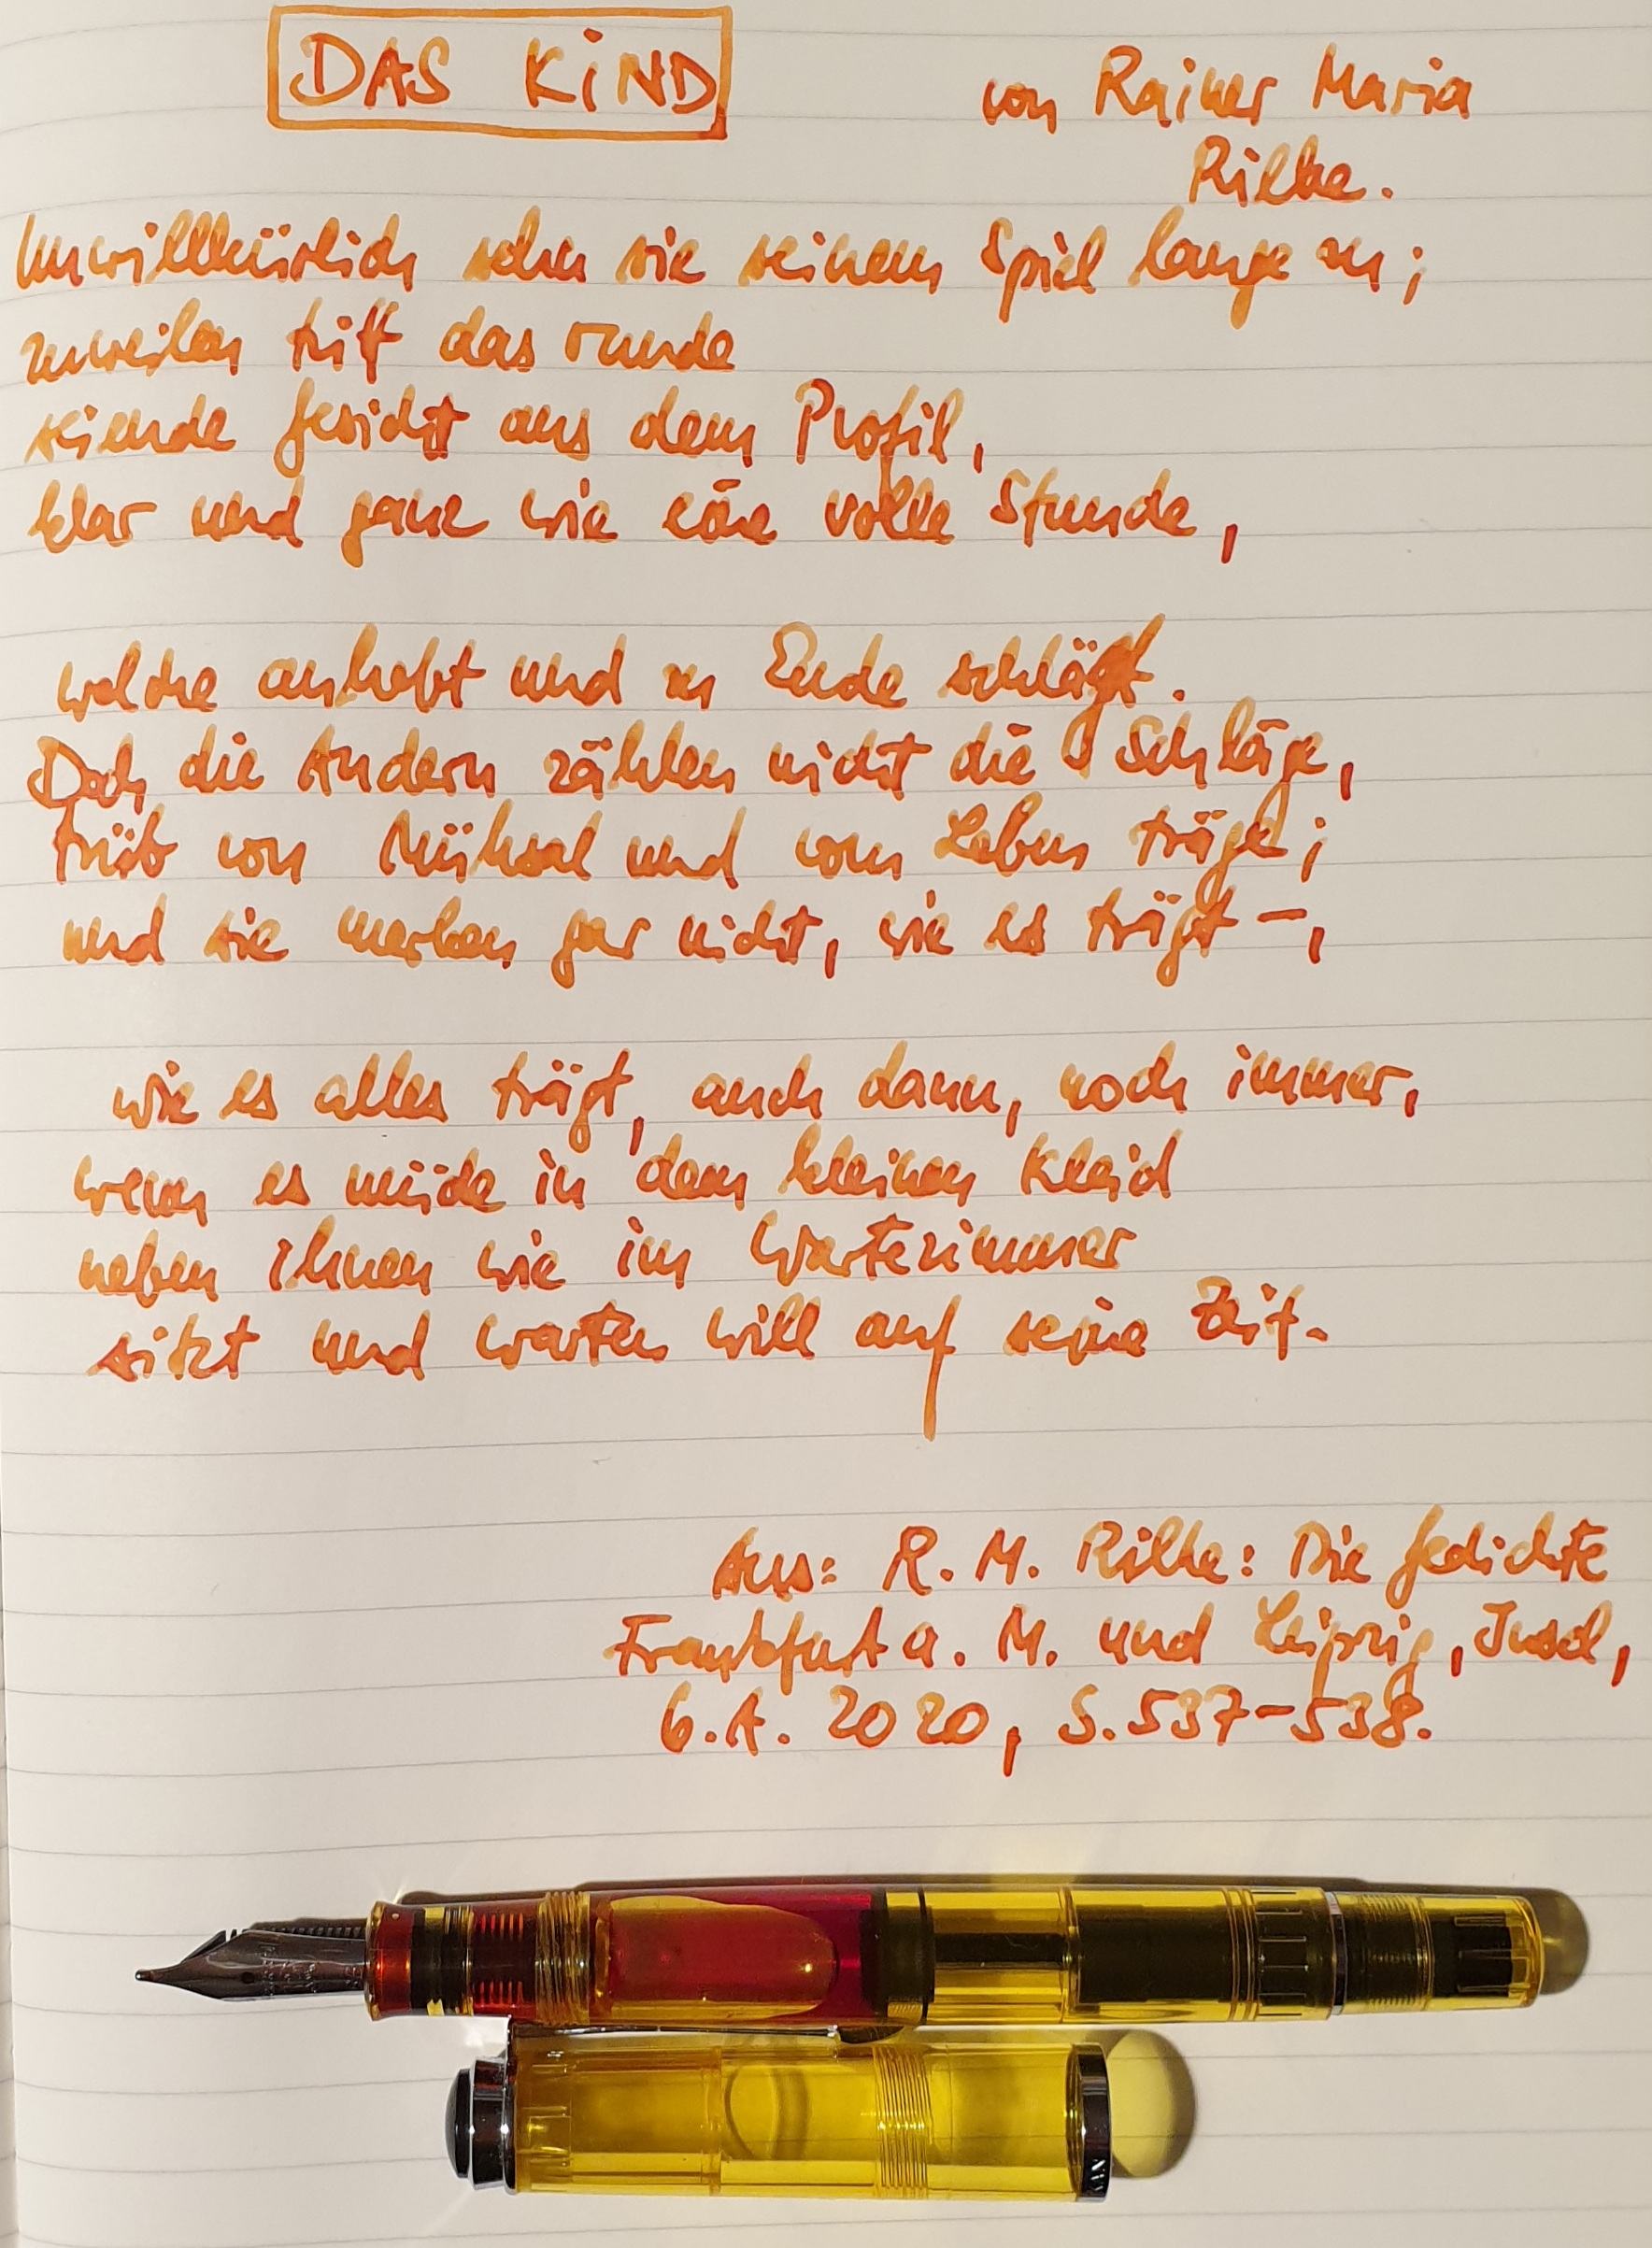 DAS KiND
von Rainer Maria
Rilke.
Unwillkürlich sehn sie seinem Spiel lange zu;
zuweilen tritt das runde
seiende Gesicht aus dem Profil,
klar und ganz wie eine volle Stunde,
welche anhebt und zu Ende schlägt.
Doch die Andern zählen nicht die Schläge,
trüb von Mühsal und vom Leben träge;
und sie merken gar nicht, wie es trägt –,
wie es alles trägt, auch dann, noch immer,
wenn es müde in dem kleinen Kleid
neben ihnen wie im Wartezimmer
sitzt und warten will auf seine Zeit.
Aus: R. M. Rilke: Die Gedichte
Frankfurt a. M. und Leipzig, Insel,
6. A. 2020, S. 537–538.